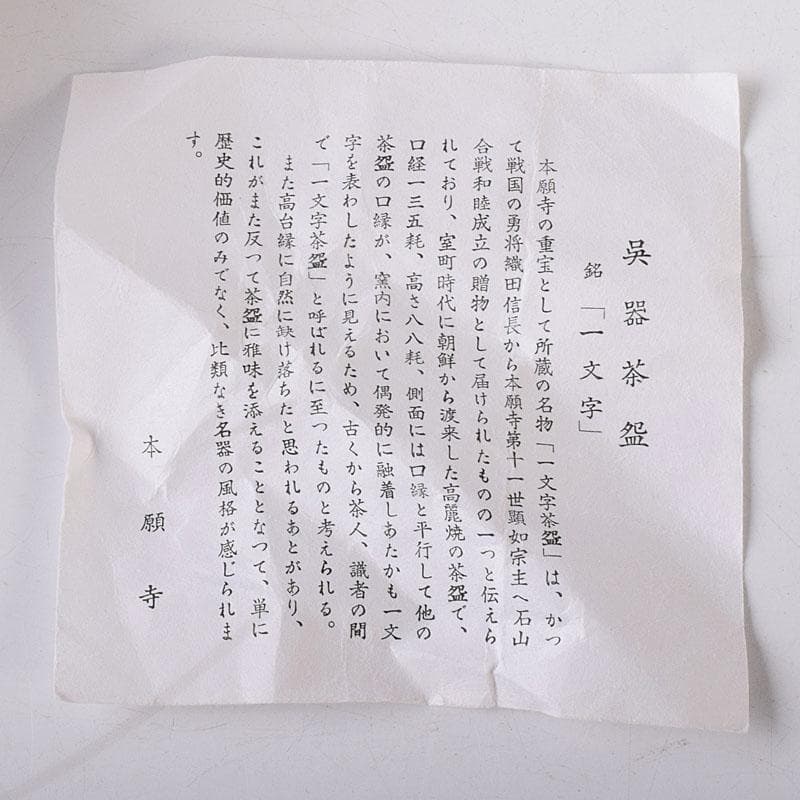 呉器茶盌
銘「一文字」
本願寺の重宝として所蔵の名物「一文字茶盌」は、かつ
て戦国の勇将織田信長から本願寺第十一世顕如宗主へ石山
合戦和睦成立の贈物として届けられたものの一つと伝えら
れており、室町時代に朝鮮から渡来した高麗焼の茶盌で、
口経一三五粍、高さ八八粍、側面には口縁と平行して他の
茶盌の口縁が、窯内において偶発的に融着しあたかも一文
字を表わしたように見えるため、古くから茶人、識者の間
で「一文字茶盌」と呼ばれるに至つたものと考えられる。
また高台縁に自然に缺け落ちたと思われるあとがあり、
これがまた反つて茶盌に雅味を添えることとなつて、単に
歴史的価値のみでなく、比類なき名器の風格が感じられま
す。
本願寺